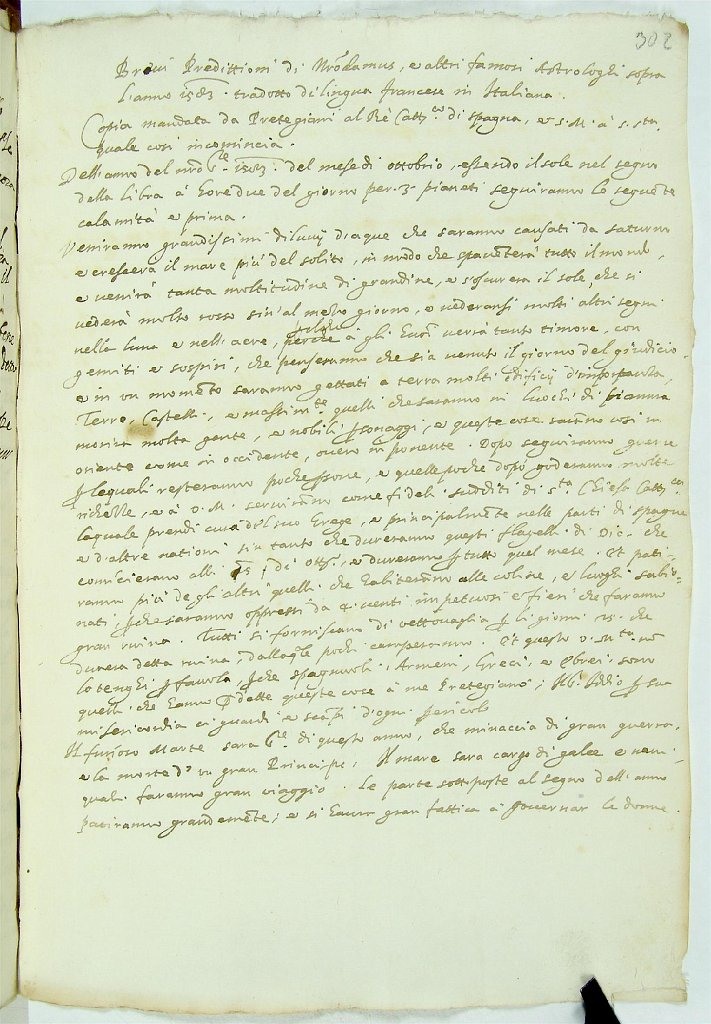 302
Brevi Predittioni di Nrōdamus, e altri famosi Astrologhi sopra
l'anno 1583. tradotto di lingua francese in Italiana.
Copia mandata da Pretegiani al Rè Catt.co di spagna, e S. M. à S. Sta.
quale cosi incomincia.
Dell'anno del nrō 1583. del mese di ottobrio, essendo il sole nel segno
della libra à hore due del giorno per 3 pianeti seguiranno le seguēte
calamità e prima.
Veniranno grandissimi diluvij d'aque che saranno causati da saturno
e crescerà il mare più del solito, in modo che spauēterà tutto il mondo,
e uenirà tanta moltitudine di grandine, e s'oscurerà il sole, che si
uederà molto rosso sin'al mezo giorno, e uederansi molti altri segni
nella luna e nell'aere, perche à gli uerrà tanto timore, con
gemiti e sospiri, che penseranno che sia uenuto il giorno del giudicio,
e in un momēto saranno gettati a terra molti edificij d'importanza,
Terre, Castelli, e massimte quelli che saranno in luochi di pianura
morirà molta gente, e nobili psonaggi, e queste cose sarāno cosi in
oriente come in occidente, ouero in ponente. Dopo seguiranno guerre
p lequali resteranno poche psone, e quelle poche dopò goderanno molte
richezze, e à V. M. seruirāno come fideli sudditi di Sta Chiesa Cattca.
laquale prendi cura del suo Grege, e principalmēte nelle parti di spagna
e d'altre nationi sin tanto che dureranno questi flagelli di Dio. che
comīcierano alli 15 di ott., e dureranno p tutto quel mese. Et pati-
ranno più de gli altri quelli che habiterāno alle coline, e luoghi sabio-
nati, pche saranno oppressi da 4 uenti impetuosi e fieri che faranno
gran ruina. Tutti si forniscano di uettouaglia p li giorni 25. che
durerà detta ruina, dalla qle pochi camperanno. Et questo V. M.tà nō
lo tenghi p fauola, pche spagnuoli, Armeni, Greci, e Ebrei sono
quelli che hanno pdette queste cose à me Pretegiano; Iddio p sua
misericordia ci guardi e scāpi d'ogni pericolo
Il furioso Marte sarà di questo anno, che minaccia di gran guerra,
e la morte d'un gran Principe, Il mare sarà cargo di galee e naui
quali faranno gran uiaggio. Le parte sottoposte al segno dell'anno
patiranno grandemēte; e si hauer gran fattica à gouernar le donne.